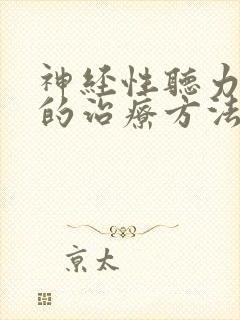 神経性聴力
的治療方法
京太